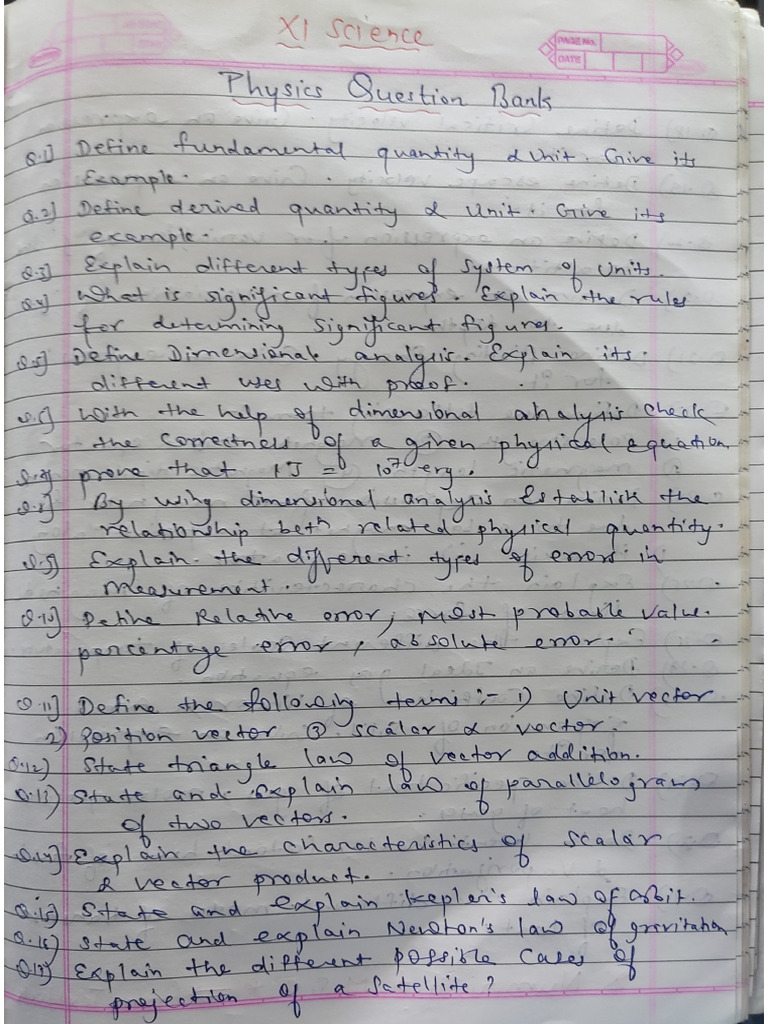 XI Science
PAGE No.
DATE
Physics Question Bank
Q.1] Define fundamental quantity & unit. Give its
Example.
Q.2] Define derived quantity & unit. Give its
example.
Q.3] Explain different types of system of units.
Q.4] What is significant figures. Explain the rules
for determining significant figures.
Q.5] Define Dimensional analysis. Explain its
different uses with proof.
Q.6] With the help of dimensional analysis check
the correctness of a given physical equation.
Q.7] prove that 1J = 10⁷ erg.
Q.8] By using dimensional analysis Establish the
relationship betⁿ related physical quantity.
Q.9] Explain the different types of errors in
measurement.
Q.10] Define Relative error, most probable value.
percentage error, absolute error.
Q.11] Define the following terms :- 1) Unit vector
2) Position vector ③ scalar & vector.
Q.12) State triangle law of vector addition.
Q.13) State and explain law of parallelogram
of two vectors.
Q.14] Explain the characteristics of scalar
& vector product.
Q.15) State and explain Kepler's law of orbit.
Q.16) State and explain Newton's law of gravitation
Q.17) Explain the different possible cases of
projection of a satellite?